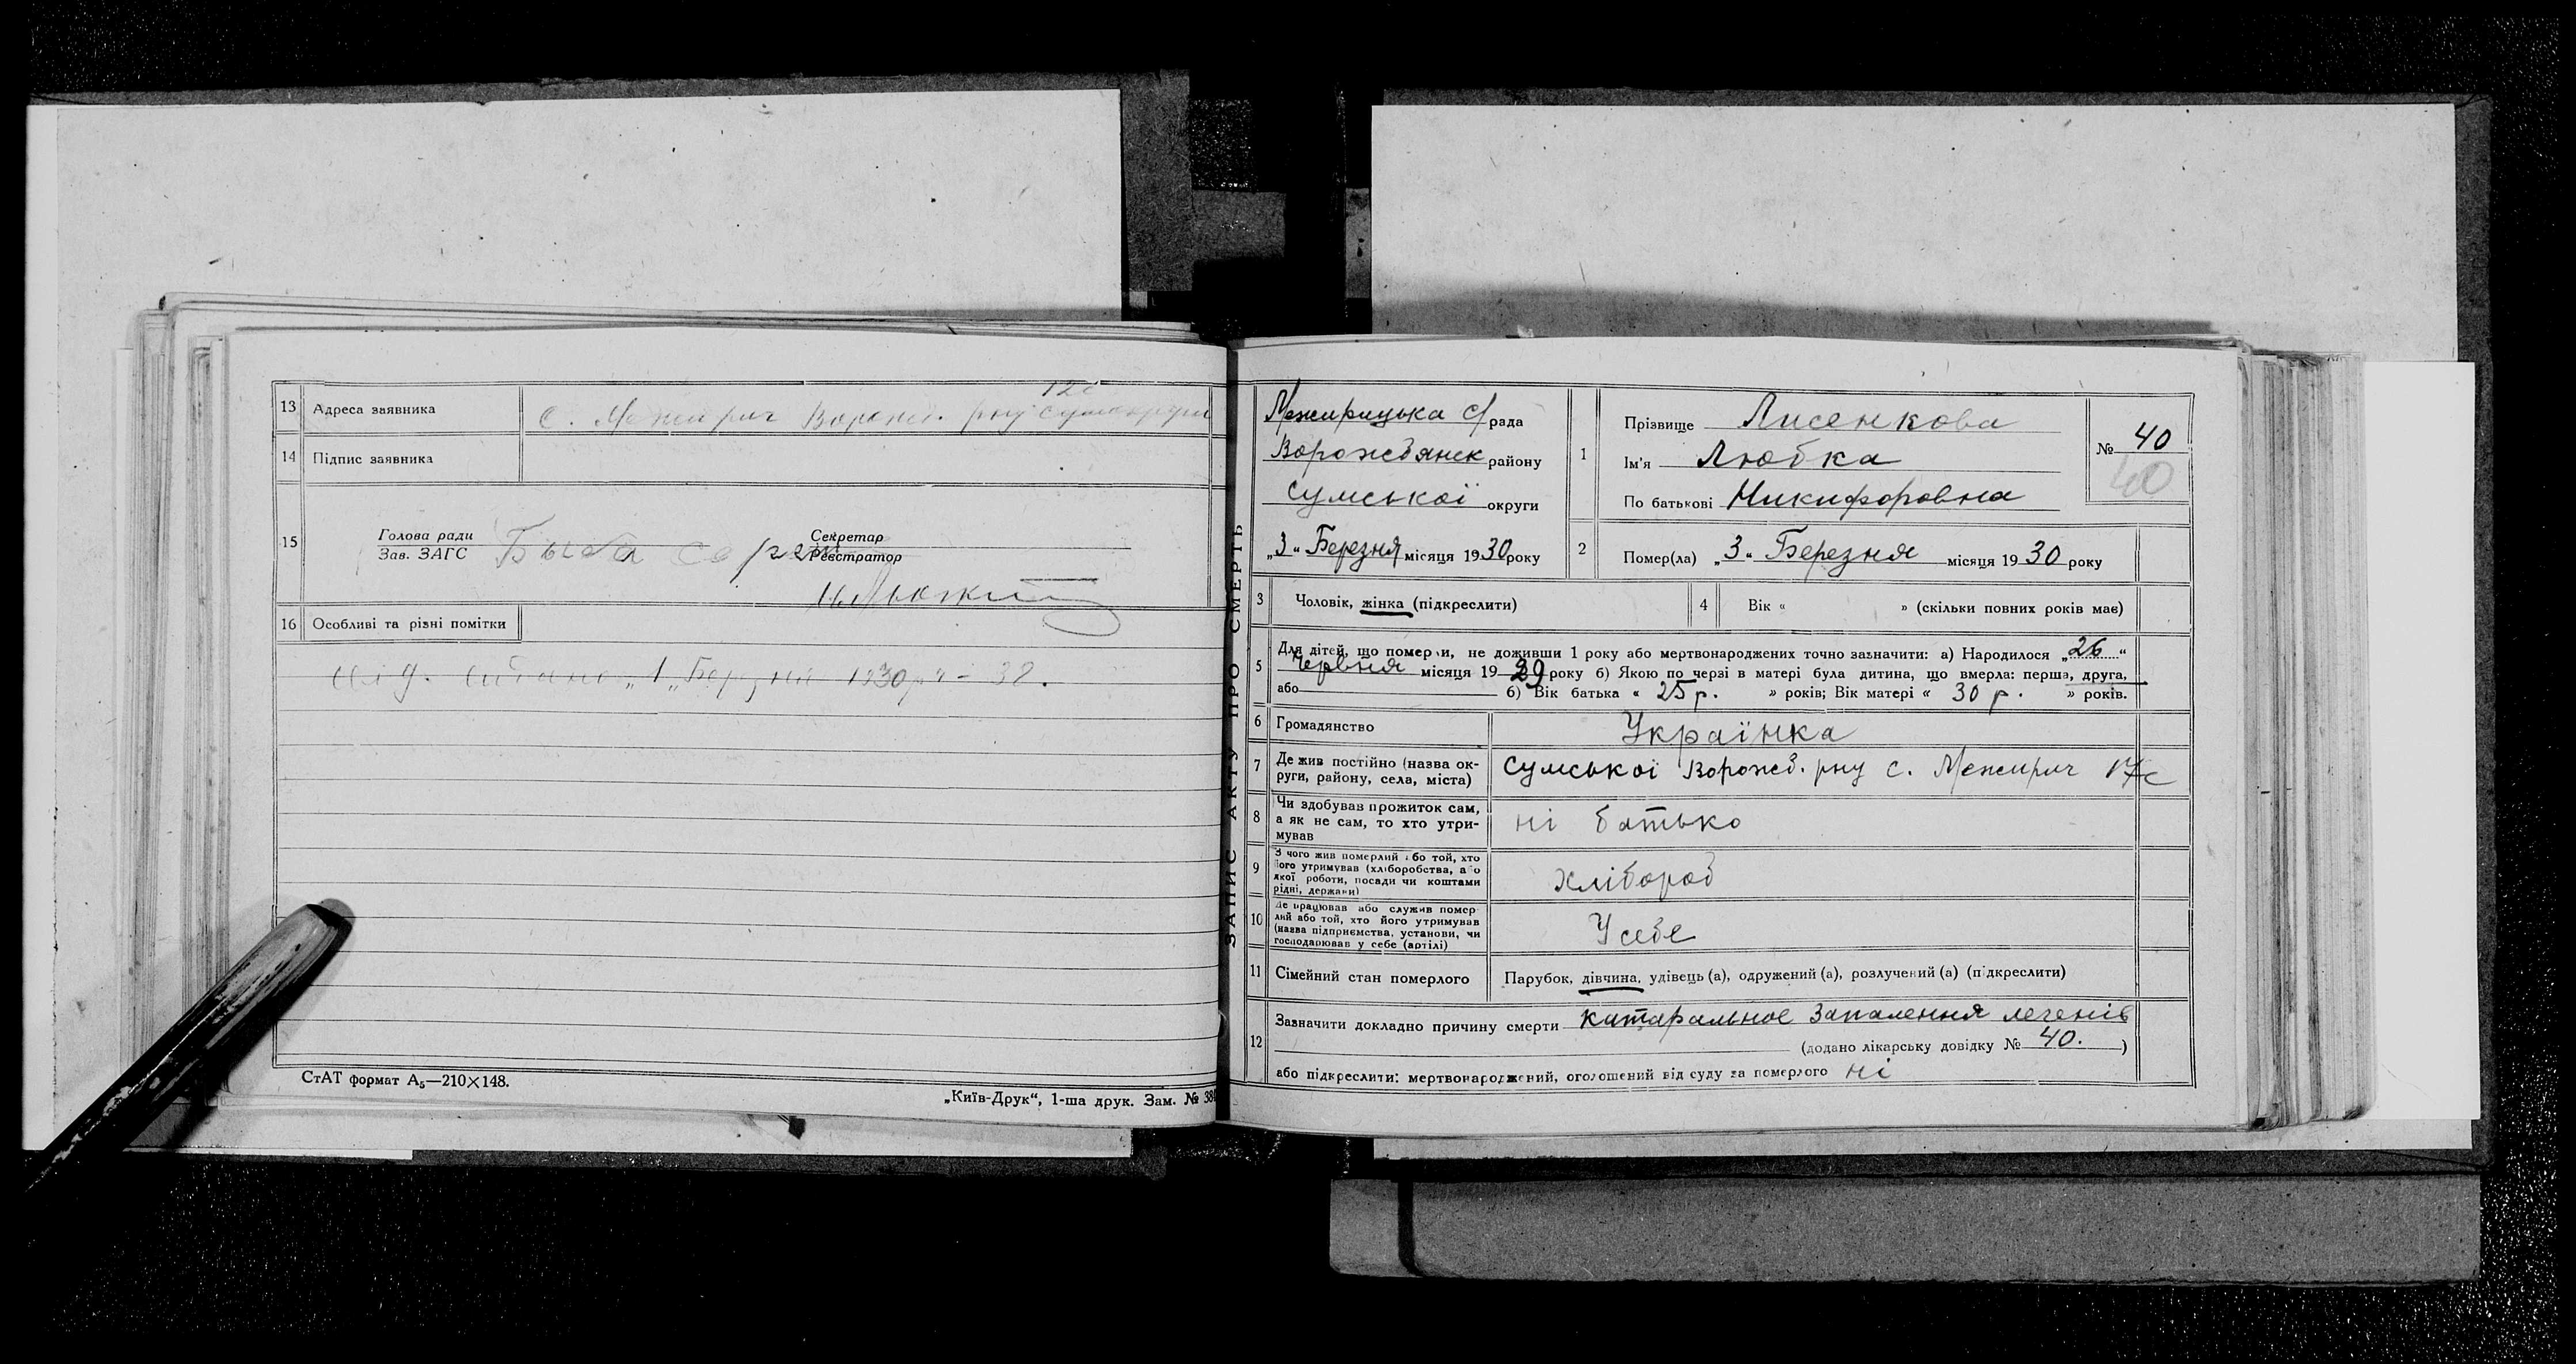 13 Адреса заявника с. Межирич Ворожб. рну Сумокруги
14 Підпис заявника
15 Голова ради Секретар
Зав. ЗАГС Реєстратор
16 Особливі та різні помітки
"1" Березня 1930 р. - 38.
СтАТ формат А₅—210×148.
„Київ-Друк“, 1-ша друк. Зам. №
ЗАПИС АКТУ ПРО СМЕРТЬ
Межирицька с/рада
Ворожбянськ району
Сумської округи
„3“ Березня місяця 1930 року
1 Прізвище Лисенкова
Ім'я Любка
По батькові Никифоровна
№ 40
40
2 Помер(ла) „3“ Березня місяця 1930 року
3 Чоловік, жінка (підкреслити)
4 Вік « » (скільки повних років має)
5 Для дітей, що померли, не доживши 1 року або мертвонароджених точно зазначити: а) Народилося „26“
Червня місяця 1929 року б) Якою по черзі в матері була дитина, що вмерла: перша, друга,
або б) Вік батька « 25 р. » років; Вік матері « 30 р. » років.
6 Громадянство Українка
7 Де жив постійно (назва округи, району, села, міста) Сумської Ворожб. рну с. Межирич
8 Чи здобував прожиток сам,
а як не сам, то хто утри-
мував ні батько
9 З чого жив померлий або той, хто
його утримував (хліборобства, або
якої роботи, посади чи коштами
рідні, держави) хлібороб
10 Де працював або служив помер-
лий або той, хто його утримував
(назва підприємства, установи, чи
господарював у себе (артілі) У себе
11 Сімейний стан померлого Парубок, дівчина, удівець (а), одружений (а), розлучений (а) (підкреслити)
12 Зазначити докладно причину смерти катаральное Запалення легенів
(додано лікарську довідку № 40.)
або підкреслити: мертвонароджений, оголошений від суду за померлого ні